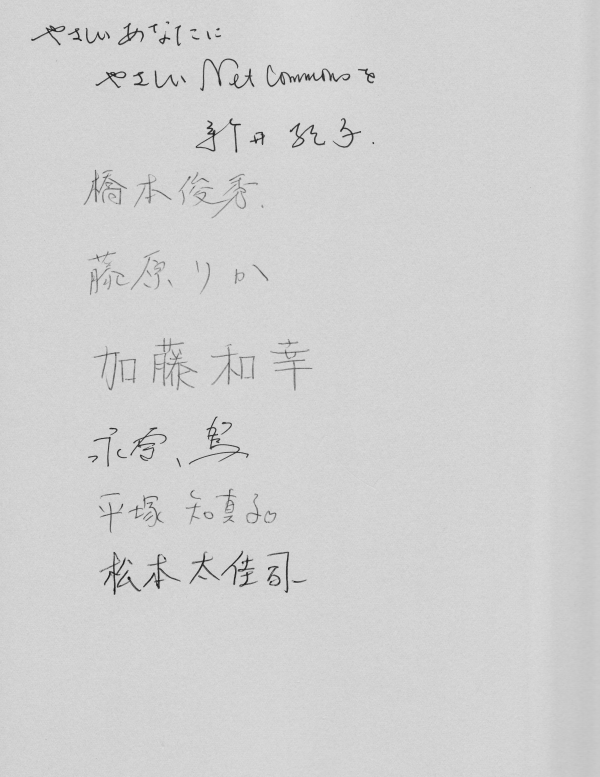 やさしいあなたに
やさしい NetCommonsを
新井 紀子.
橋本俊秀.
藤原りか
加藤和幸
永原 篤
平塚 知真子
松本太佳司